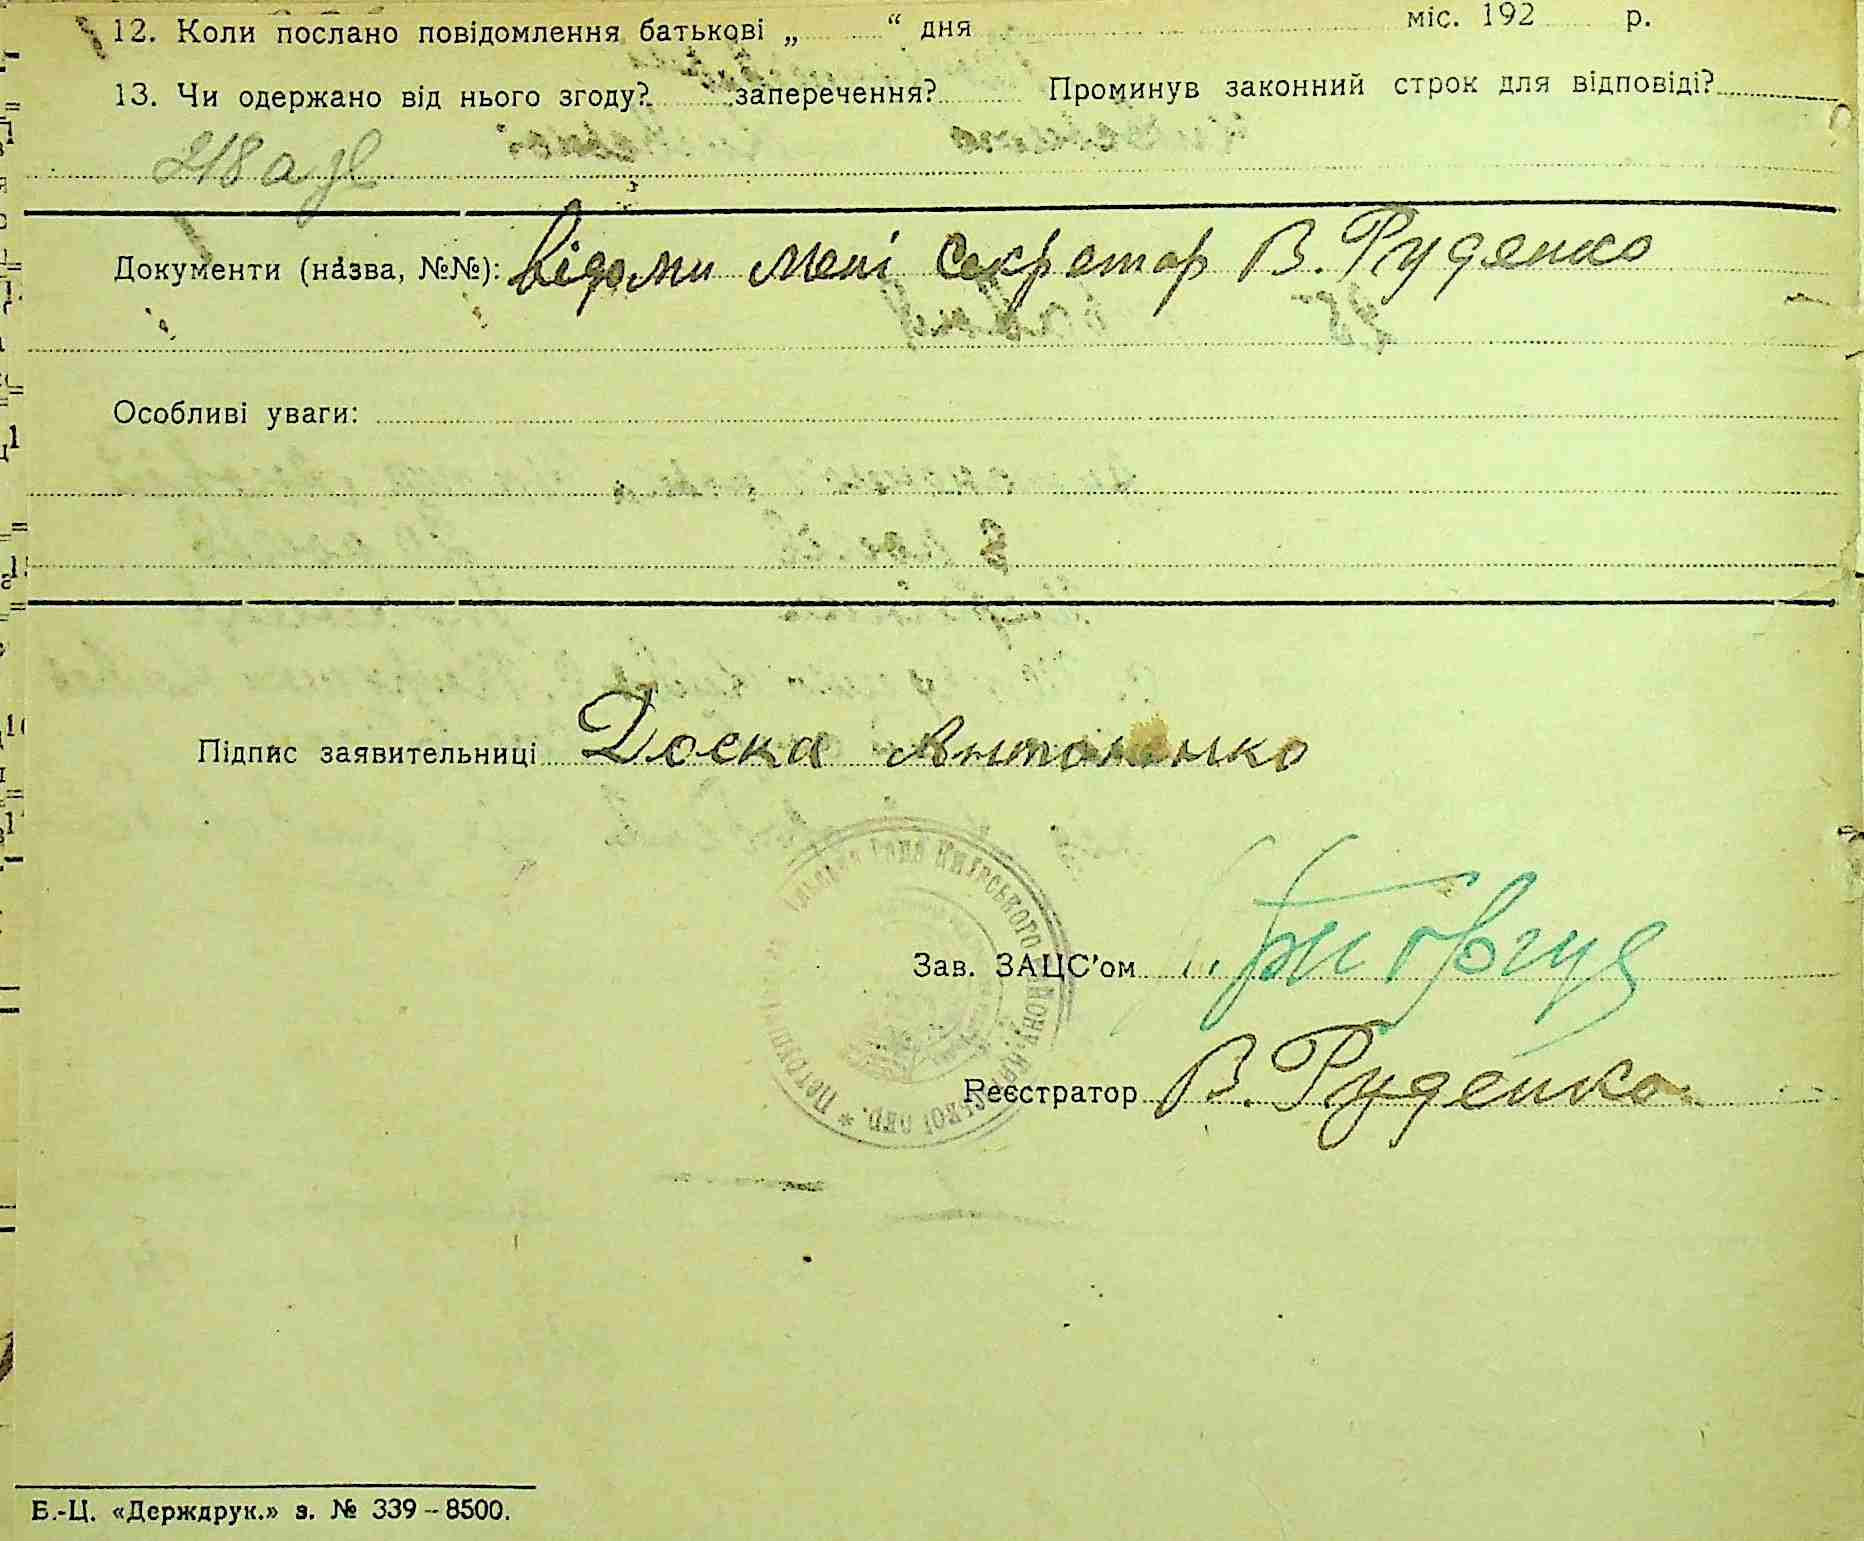 12. Коли послано повідомлення батькові „ “ дня міс. 192 р.
13. Чи одержано від нього згоду? заперечення? Проминув законний строк для відповіді?
218
Документи (назва, №№): відоми мені секретар В. Руденко
Особливі уваги:
Підпис заявительниці Доска Антоненко
Зав. ЗАЦС'ом
Реєстратор В. Руденко
Б.-Ц. «Держдрук.» з. № 339–8500.